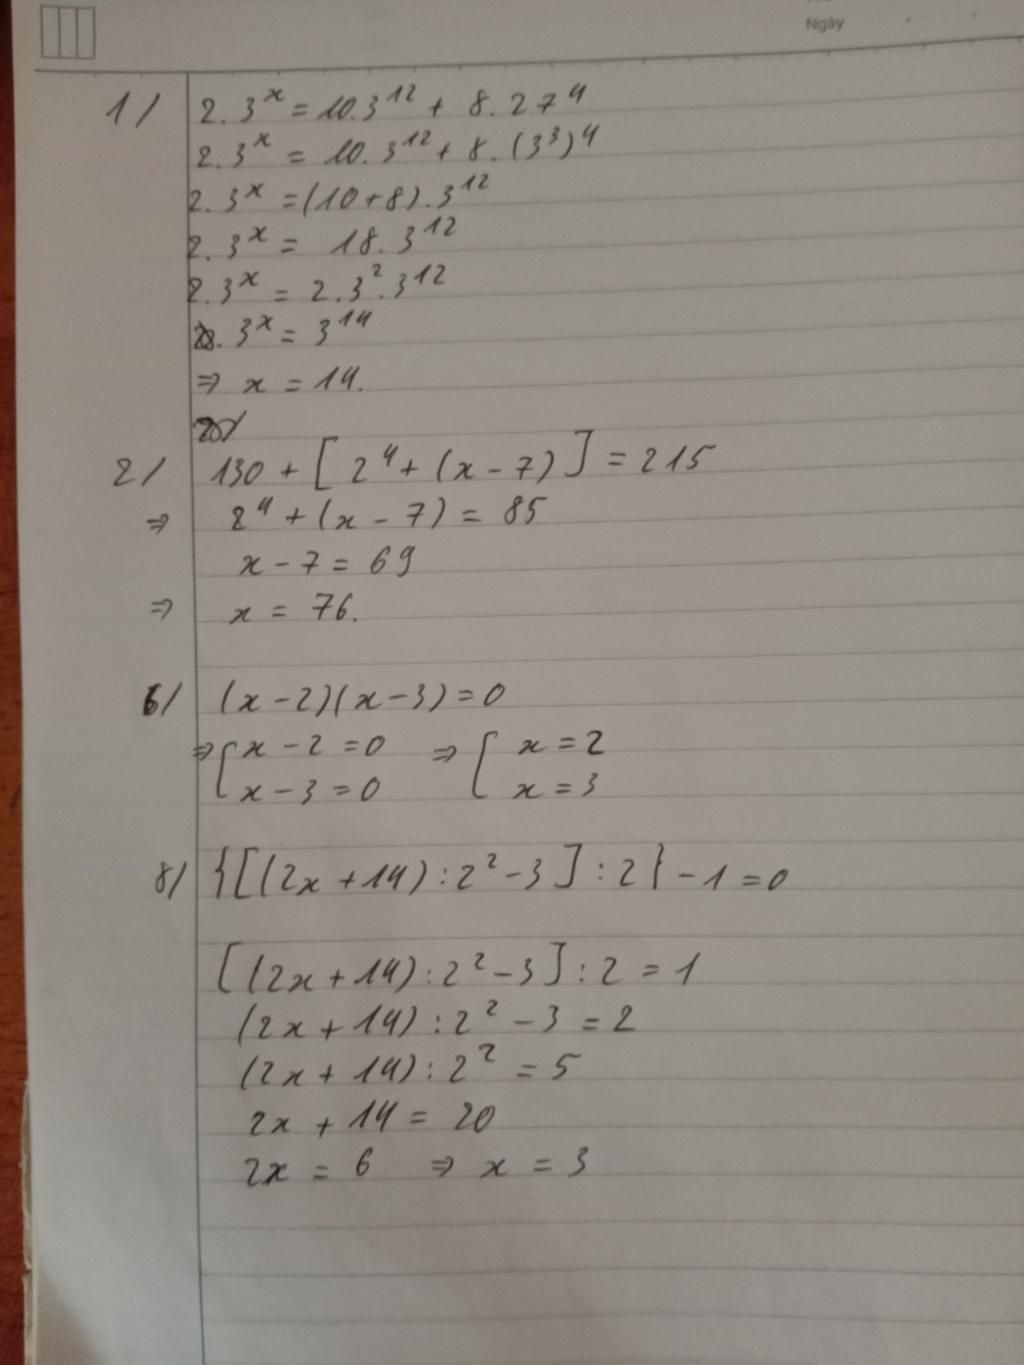 Ngày
1/ 2.3^x = 10.3^12 + 8.27^4
2.3^x = 10.3^12 + 8.(3^3)^4
2.3^x = (10+8).3^12
2.3^x = 18.3^12
2.3^x = 2.3^2.3^12
3^x = 3^14
⇒ x = 14.
2/ 130 + [2^4 + (x - 7)] = 215
⇒ 2^4 + (x - 7) = 85
x - 7 = 69
⇒ x = 76.
6/ (x - 2)(x - 3) = 0
⇒ [ x - 2 = 0 ⇒ [ x = 2
x - 3 = 0 x = 3
8/ {[(2x + 14) : 2^2 - 3] : 2} - 1 = 0
[(2x + 14) : 2^2 - 3] : 2 = 1
(2x + 14) : 2^2 - 3 = 2
(2x + 14) : 2^2 = 5
2x + 14 = 20
2x = 6 ⇒ x = 3